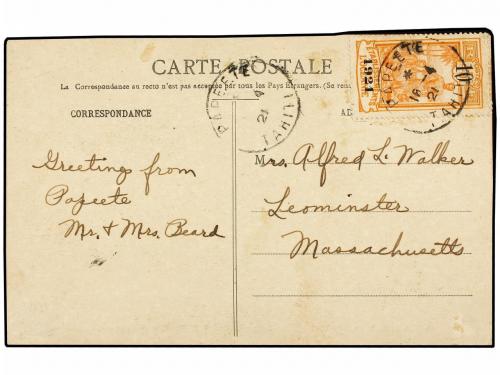 CARTE POSTALE
La Correspondance au recto n'est pas acceptée par tous les Pays Étrangers. (Se
CORRESPONDANCE
AD
PAPEETE
21
TAHITI
PAPEETE
16
21
TAH
10
1921
Greeting from
Papeete
Mr. & Mrs. Beard
Mrs. Alfred L. Walker
Leominster
Massachusetts